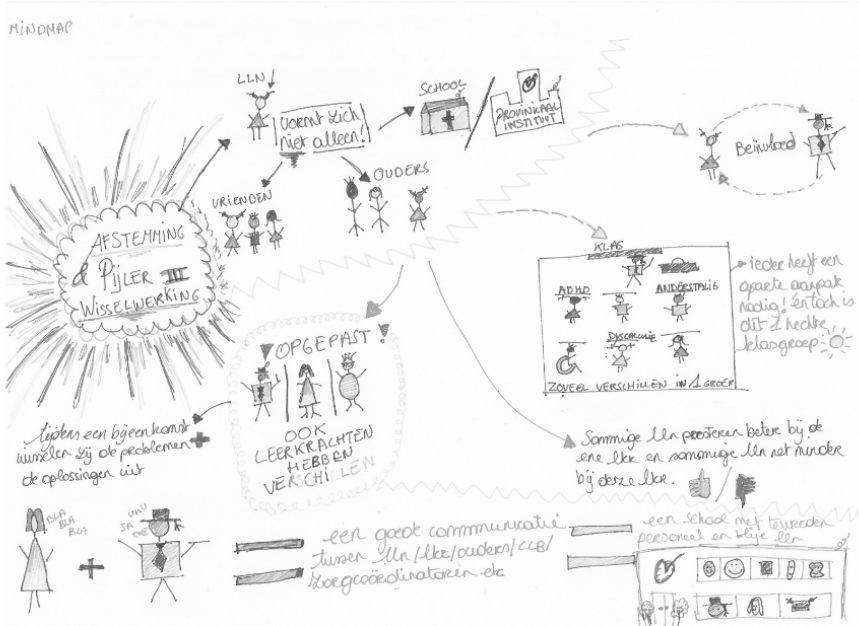 MINDMAP
AFSTEMMING
& PIJLER III
WISSELWERKING
LLN
VORMT ZICH
NIET ALLEEN!
SCHOOL
PROVINCIAAL
INSTITUUT
VRIENDEN
OUDERS
Beïnvloed
KLAS
ADHD
ANDERSTALIG
DYSCALCULIE
ZOVEEL VERSCHILLEN IN 1 GROEP
ieder heeft een
aparte aanpak
nodig! En toch is
dit 1 hechte
klasgroep
! OPGEPAST !
OOK
LEERKRACHTEN
HEBBEN
VERSCHILLEN
tijdens een bijeenkomst
wisselen zij de problemen +
de oplossingen uit
Sommige lln presteren beter bij de
ene lkr en sommige lln net minder
bij deze lkr.
BLA
BLA
BLA
+
JA
=
een goede communicatie
tussen lln/lkr/ouders/CLB/
zorgcoördinatoren etc
=
een school met tevreden
personeel en blije lln